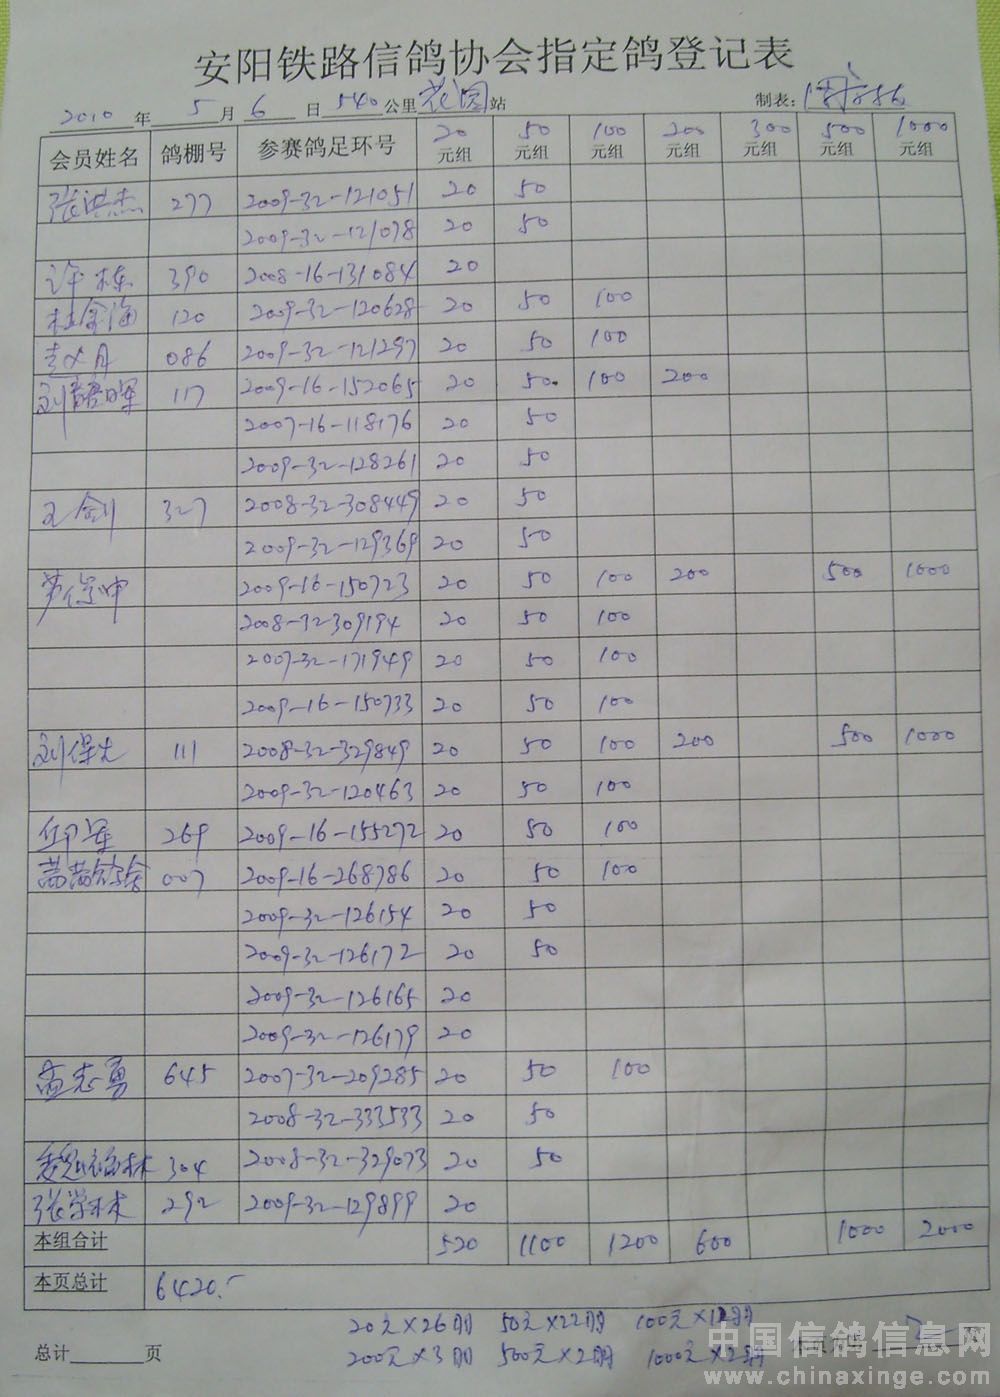 安阳铁路信鸽协会指定鸽登记表
2010 年 5 月 6 日 540 公里 花园 站 制表:
会员姓名 鸽棚号 参赛鸽足环号 20元组 50元组 100元组 200元组 300元组 500元组 1000元组
张洪杰 277 2009-32-121051 20 50
2009-32-121078 20 50
许栋 390 2008-16-131084 20
杜金海 120 2009-32-120628 20 50 100
086 2009-32-121297 20 50 100
刘 117 2009-16-152065 20 50 100 200
2007-16-118176 20 50
2009-32-128261 20 50
王剑 327 2008-32-308449 20 50
2009-32-129369 20 50
2009-16-150723 20 50 100 200 500 1000
2008-32-309194 20 50 100
2007-32-171949 20 50 100
2009-16-150733 20 50 100
刘保先 111 2008-32-329849 20 50 100 200 500 1000
2009-32-120463 20 50 100
269 2009-16-155272 20 50 100
007 2009-16-268786 20 50 100
2009-32-126154 20 50
2009-32-126172 20 50
2009-32-126165 20
2009-32-126179 20
孟志勇 645 2007-32-209285 20 50 100
2008-32-333533 20 50
304 2008-32-329073 20 50
张学林 292 2009-32-129899 20
本组合计 520 1100 1200 600 1000 2000
本页总计 6420.-
20元×26羽 50元×22羽 100元×12羽
总计 页 200元×3羽 500元×2羽 1000元×2羽
中国信鸽信息网
www.chinaxinge.com